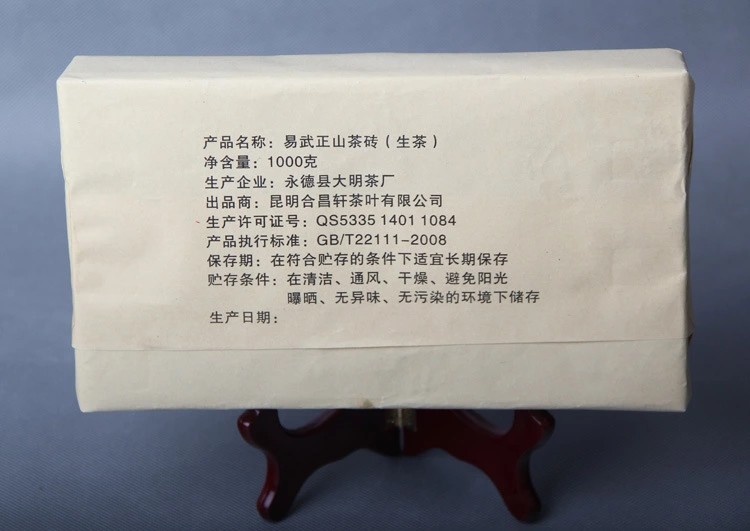 产品名称：易武正山茶砖（生茶）
净含量：1000克
生产企业：永德县大明茶厂
出品商：昆明合昌轩茶叶有限公司
生产许可证号：QS5335 1401 1084
产品执行标准：GB/T22111-2008
保存期：在符合贮存的条件下适宜长期保存
贮存条件：在清洁、通风、干燥、避免阳光
曝晒、无异味、无污染的环境下储存
生产日期：